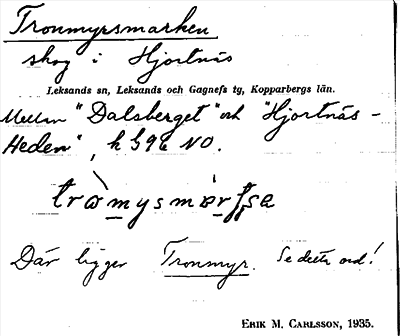 Tronmyrsmarken
skog i Hjortnäs
Leksands sn, Leksands och Gagnefs tg, Kopparbergs län.
Mellan "Dalsberget" och "Hjortnäs-
Heden", k 596 NO.
Där ligger Tronmyr. Se detta ord!
ERIK M. CARLSSON, 1935.